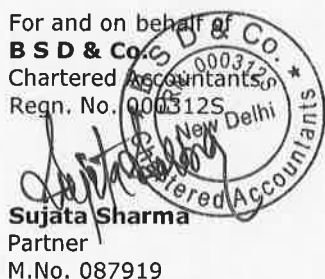 For and on behalf of
B S D & Co.
Chartered Accountants
Regn. No. 000312S
B S D & Co. *
FRN 000312S
New Delhi
Chartered Accountants
Sujata Sharma
Sujata Sharma
Partner
M.No. 087919